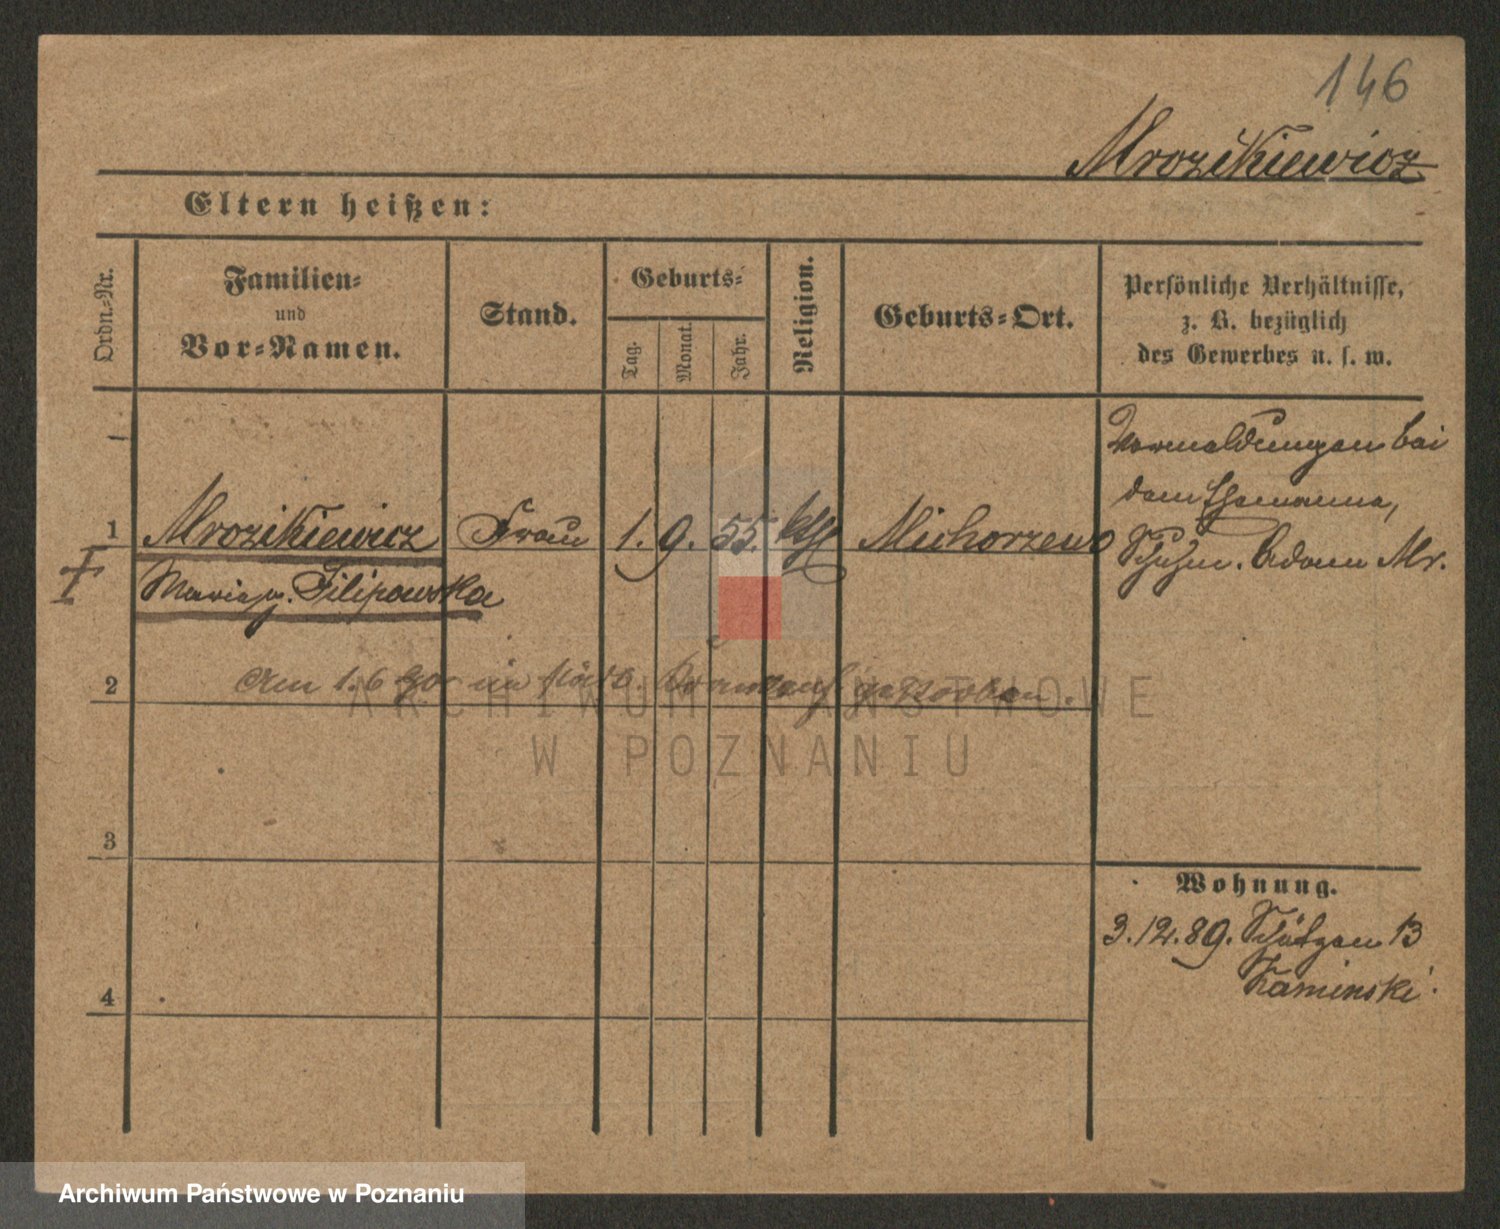 146
Mrozikiewicz
Eltern heißen:
Ordn.-Nr.
Familien-
und
Vor-Namen.
Stand.
Geburts-
Tag.
Monat.
Jahr.
Religion.
Geburts-Ort.
Persönliche Verhältnisse,
z. B. bezüglich
des Gewerbes u. s. w.
1 Mrozikiewicz Frau 1. 9. 55. kth Michorzewo
Maria g. Filipowska
Vormeldungen bei
dem Ehemanne,
Schuhm. Adam Mr.
2 Am 1.6 90 im städt. Krankenh gestorben.
3
4
Wohnung.
3.12.89. Schützen 13
Kaminski.
ARCHIWUM PAŃSTWOWE
W POZNANIU
Archiwum Państwowe w Poznaniu